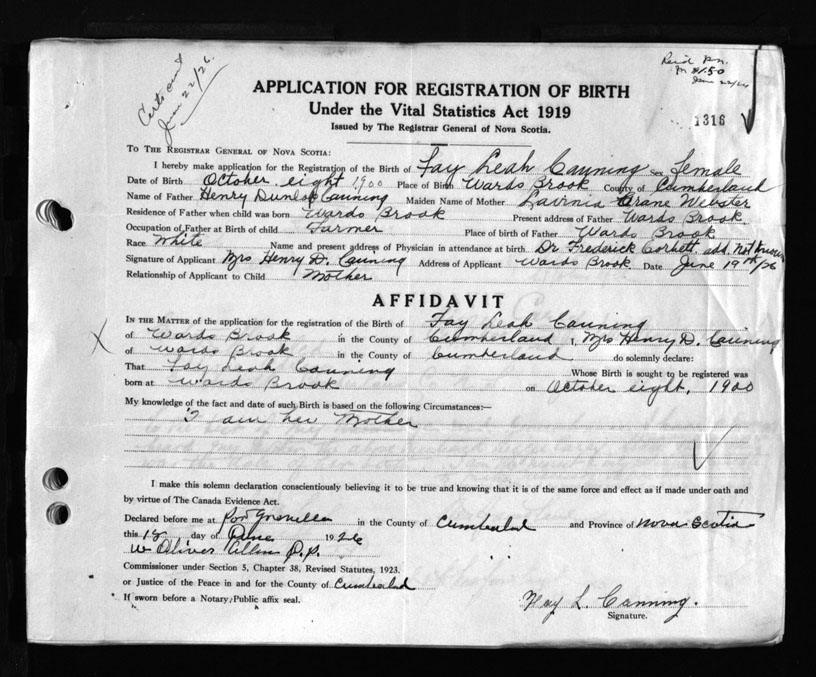 Certs cent
June 22/26.
Rec'd Pn.
M $1.50
June 22/26
APPLICATION FOR REGISTRATION OF BIRTH
Under the Vital Statistics Act 1919
Issued by The Registrar General of Nova Scotia.
1316
To The Registrar General of Nova Scotia:
I hereby make application for the Registration of the Birth of Fay Leah Canning Sex Female
Date of Birth October eight 1900 Place of Birth Wards Brook County of Cumberland
Name of Father Henry Dunlop Canning Maiden Name of Mother Lavinia Crane Webster
Residence of Father when child was born Wards Brook Present address of Father Wards Brook
Occupation of Father at Birth of child Farmer Place of birth of Father Wards Brook
Race White Name and present address of Physician in attendance at birth Dr. Frederick Corbett add. Not known
Signature of Applicant Mrs Henry D. Canning Address of Applicant Wards Brook. Date June 19th/26
Relationship of Applicant to Child Mother
AFFIDAVIT
In the Matter of the application for the registration of the Birth of Fay Leah Canning
X of Wards Brook in the County of Cumberland I, Mrs Henry D. Canning
of Wards Brook in the County of Cumberland do solemnly declare:
That Fay Leah Canning Whose Birth is sought to be registered was
born at Wards Brook on October eight, 1900
My knowledge of the fact and date of such Birth is based on the following Circumstances:—
I am her Mother
I make this solemn declaration conscientiously believing it to be true and knowing that it is of the same force and effect as if made under oath and
by virtue of The Canada Evidence Act.
Declared before me at in the County of Cumberland and Province of Nova Scotia
this day of June 1926
W Oliver
Commissioner under Section 5, Chapter 38, Revised Statutes, 1923.
or Justice of the Peace in and for the County of Cumberland
If sworn before a Notary Public affix seal.
Fay L. Canning.
Signature.